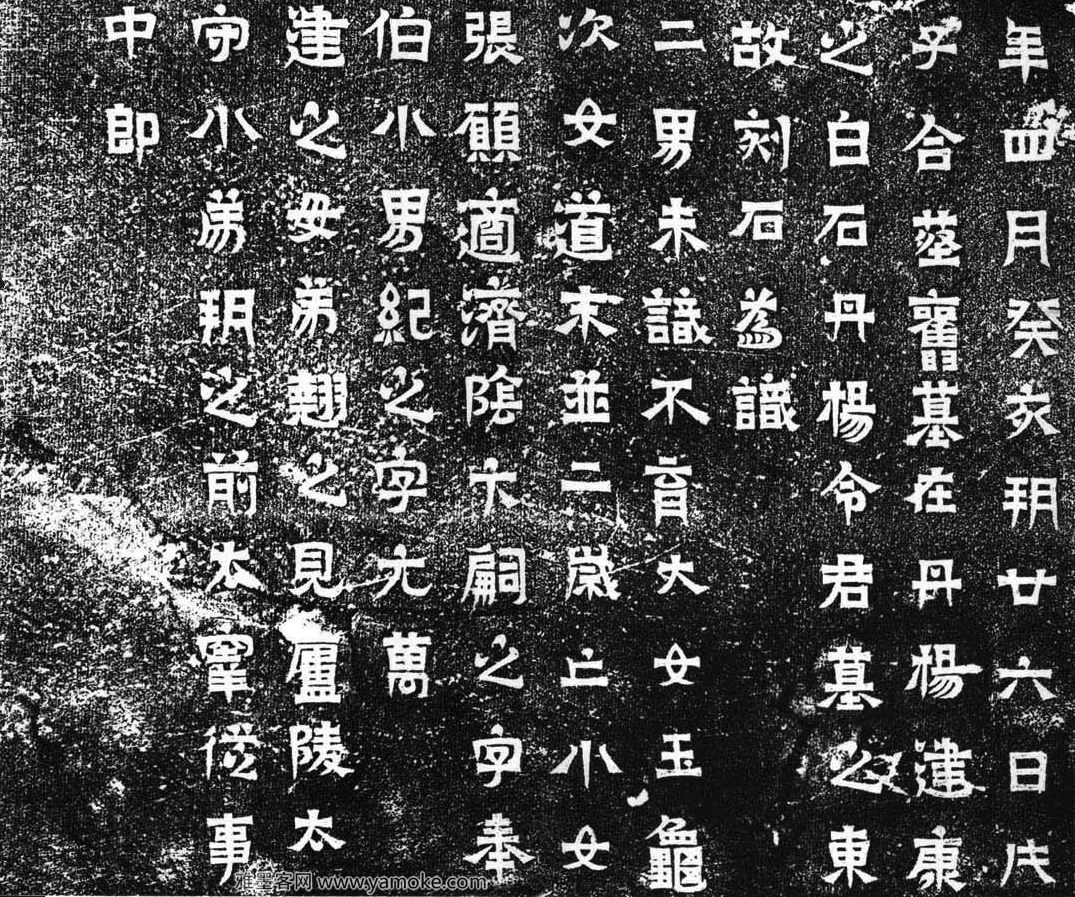 年四月癸亥朔廿六日戊
子合葬舊墓在丹楊建康
之白石丹楊令君墓之東
故刻石為識
二男未識不育大女玉龜
次女道末並二歲亡小女
張願適濟陰卞嗣之字奉
伯小男紀之字元萬
建之母弟翹之見廬陵太
守小弟朔之前太宰從事
中郎
雅墨客网 www.yamoke.com